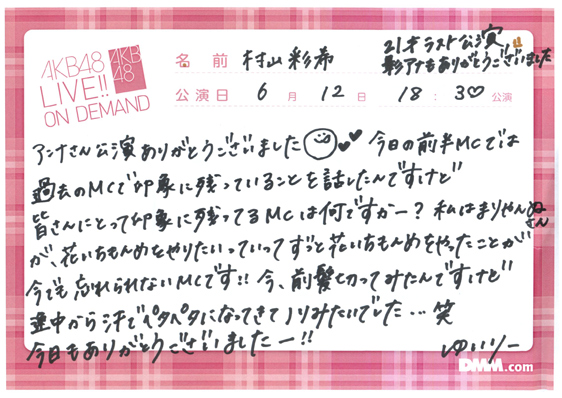 AKB48
LIVE!!
ON DEMAND
AKB
48
名前 村山彩希
21才ラスト公演
影アナもありがとうございました
公演日 6月12日 18:30公演
アンナさん公演ありがとうございました 今日の前半MCでは
過去のMCで印象に残っていることを話したんですけど
皆さんにとって印象に残ってるMCは何ですかー?私はまりやんぬさん
が、花いちもんめをやりたいっていってずっと花いちもんめをやったことが
今でも忘れられないMCです!!今、前髪切ってみたんですけど
途中から汗でペタペタになってきてノリみたいでした…笑
今日もありがとうございましたー!!
ゆいりー
DMM.com